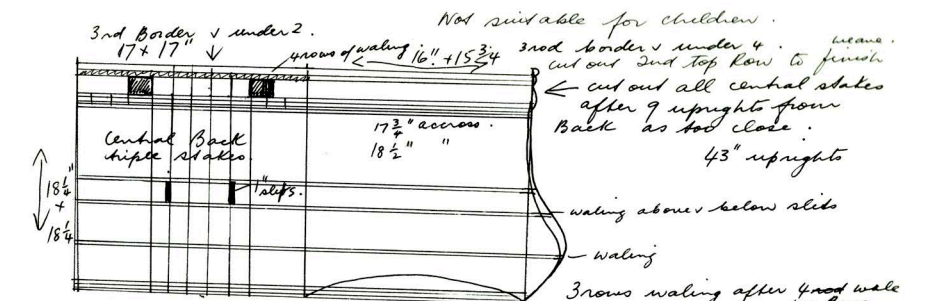 Not suitable for children.
3rd Border v under 2.
17 x 17"
4 rows of waling.
16" + 15 3/4
3rod border v under 4.
cut out 2nd top Row to finish
weave.
← cut out all central stakes
after 9 uprights from
Back as too close.
43" uprights
17 3/4" accross.
18 1/2" "
Central Back
triple stakes.
18 1/4"
+
18 1/4
1" slits.
waling above v below slits
waling
3 rows waling after 4 rod wale